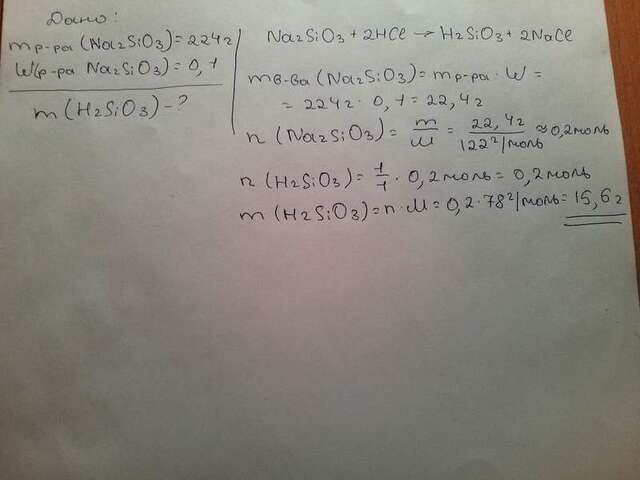 Дано:
m р-ра (Na2SiO3) = 224г
W(р-ра Na2SiO3) = 0,1
m (H2SiO3) - ?
Na2SiO3 + 2HCl → H2SiO3 + 2NaCl
m в-ва (Na2SiO3) = m р-ра · W =
= 224г · 0,1 = 22,4г
n (Na2SiO3) = m/M = 22,4г/122г/моль ≈ 0,2моль
n (H2SiO3) = 1/1 · 0,2моль = 0,2моль
m (H2SiO3) = n · M = 0,2 · 78г/моль = 15,6г